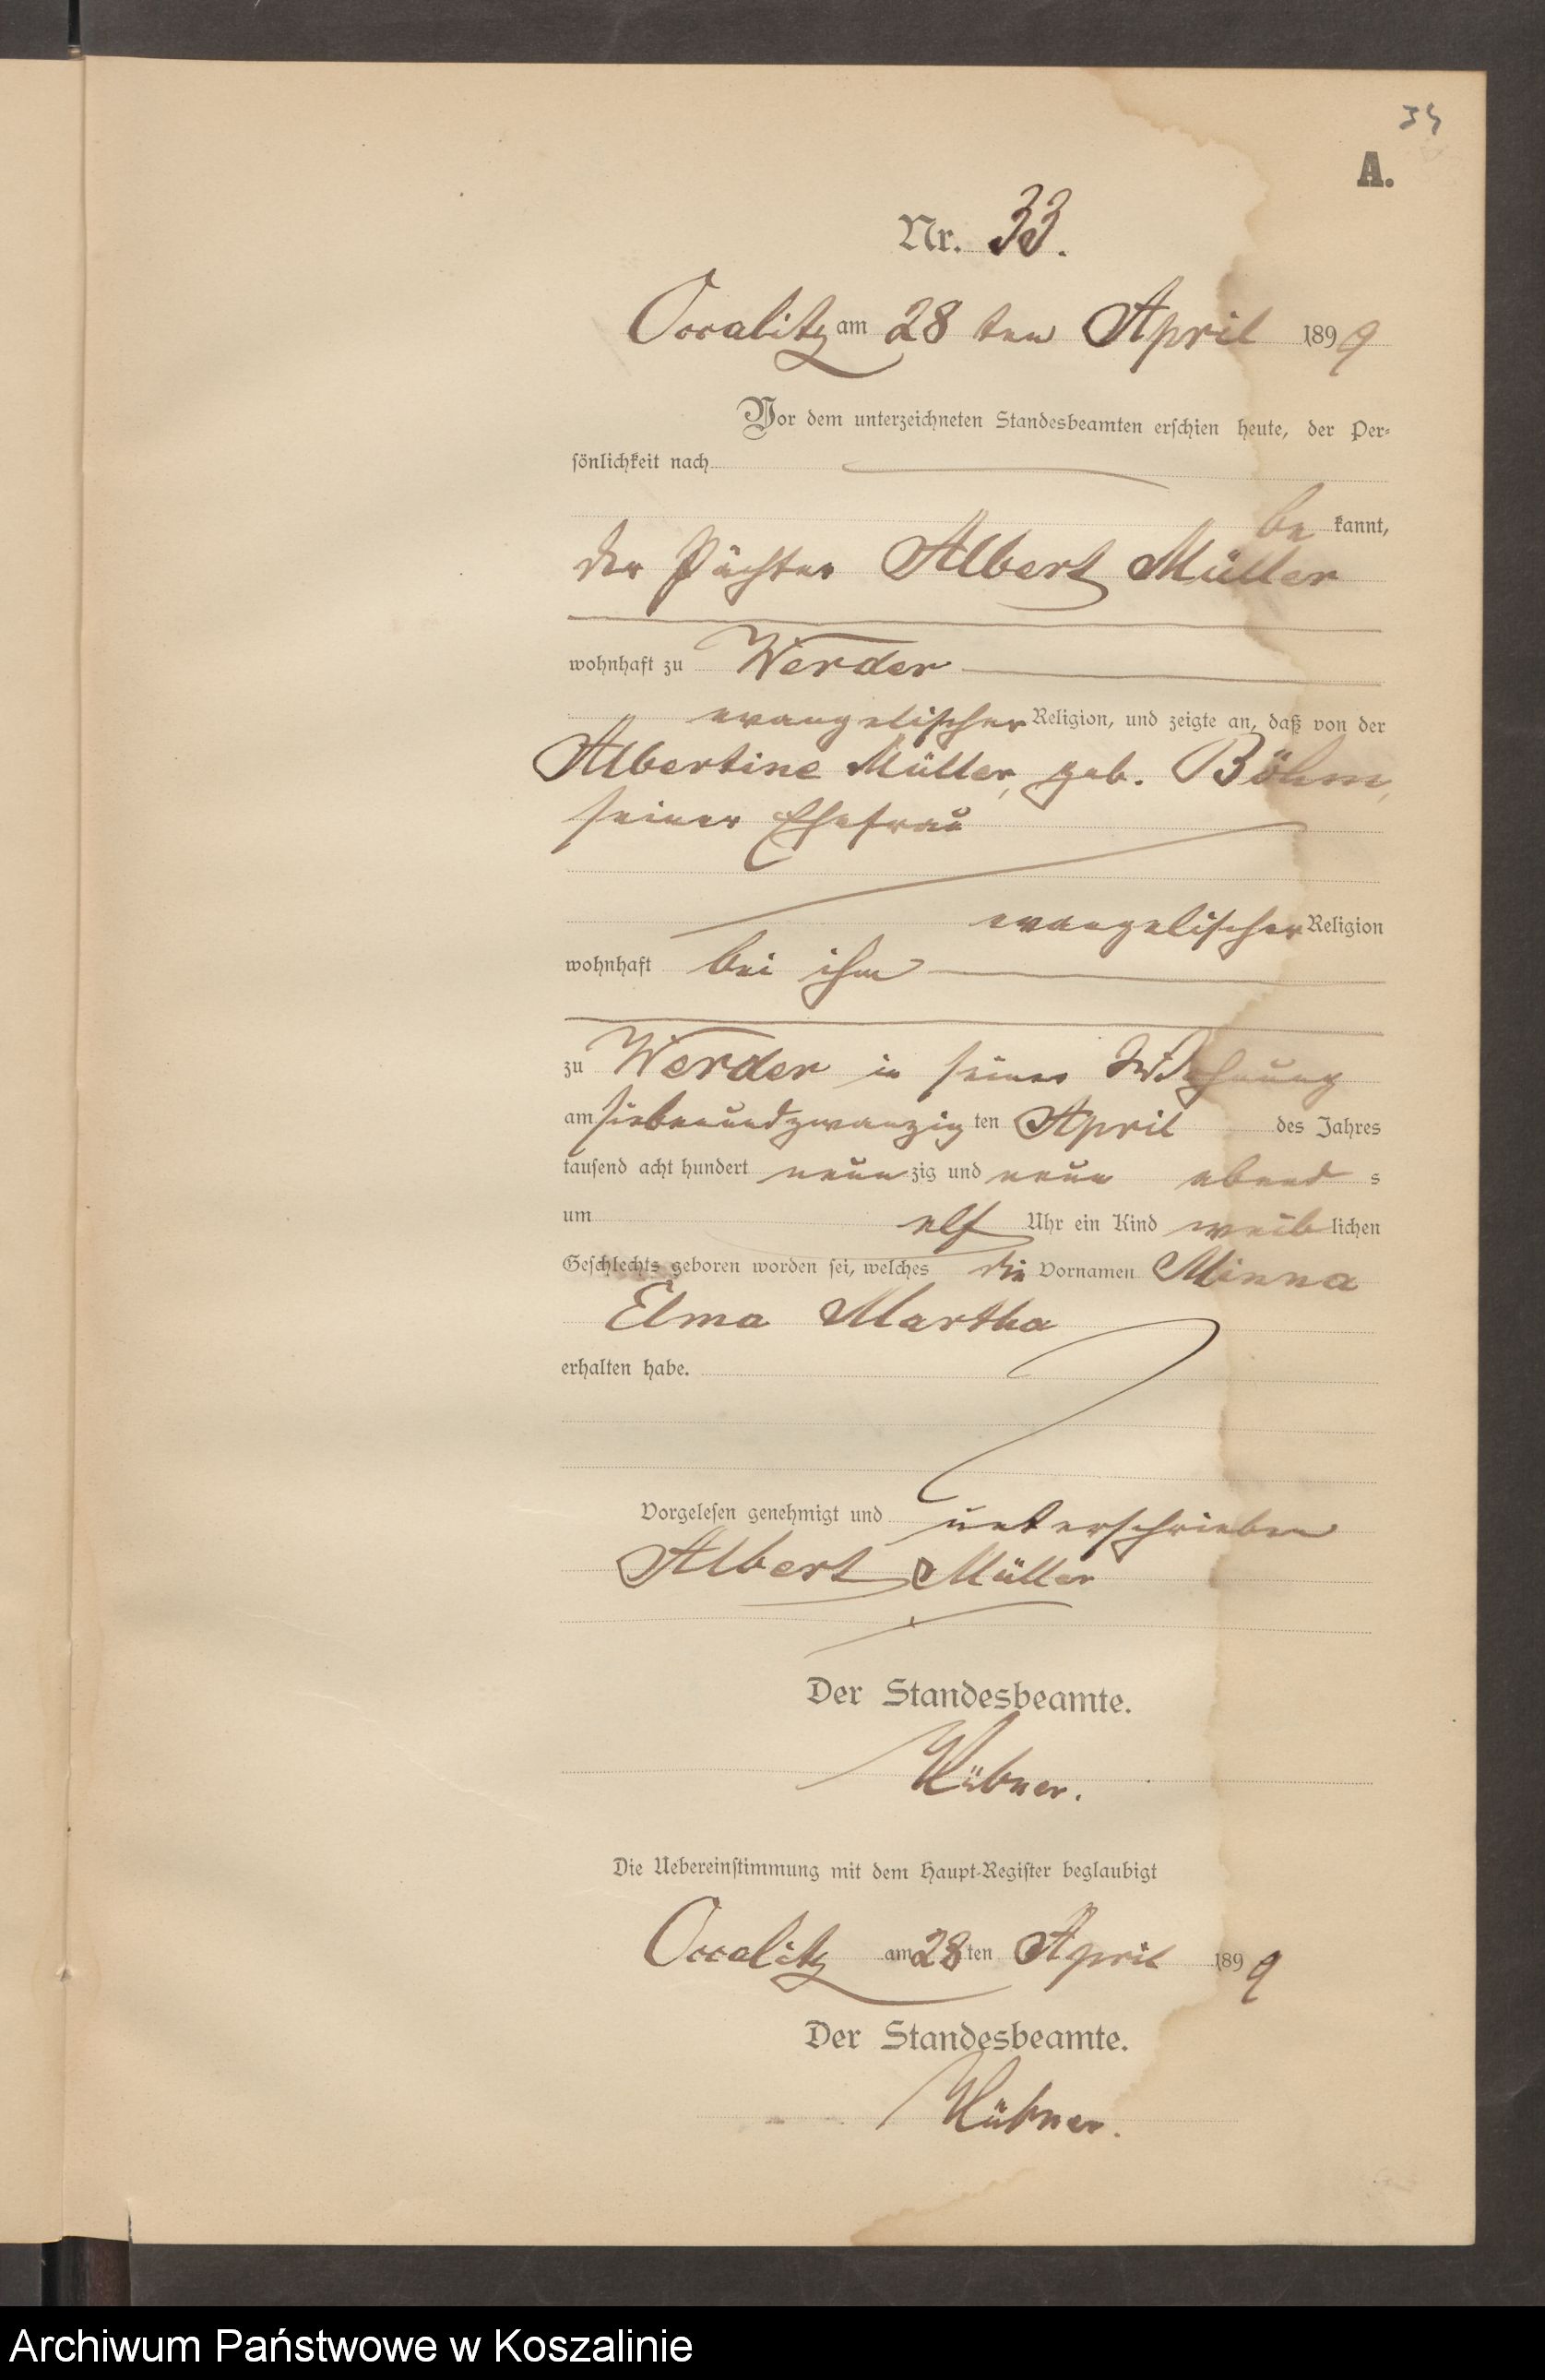 34
A.
Nr. 33.
Occalitz am 28 ten April 1899
Vor dem unterzeichneten Standesbeamten erschien heute, der Per-
sönlichkeit nach
be kannt,
der Pächter Albert Müller
wohnhaft zu Werder
evangelischer Religion, und zeigte an, daß von der
Albertine Müller, geb. Böhm,
seiner Ehefrau
evangelischer Religion
wohnhaft bei ihm
zu Werder in seiner Wohnung
am siebenundzwanzig ten April des Jahres
tausend acht hundert neun zig und neun abend s
um elf Uhr ein Kind weib lichen
Geschlechts geboren worden sei, welches die Vornamen Minna
Elma Martha
erhalten habe.
Vorgelesen genehmigt und unterschrieben
Albert Müller
Der Standesbeamte.
Hübner.
Die Uebereinstimmung mit dem Haupt-Register beglaubigt
Occalitz am 28 ten April 1899
Der Standesbeamte.
Hübner.
Archiwum Państwowe w Koszalinie